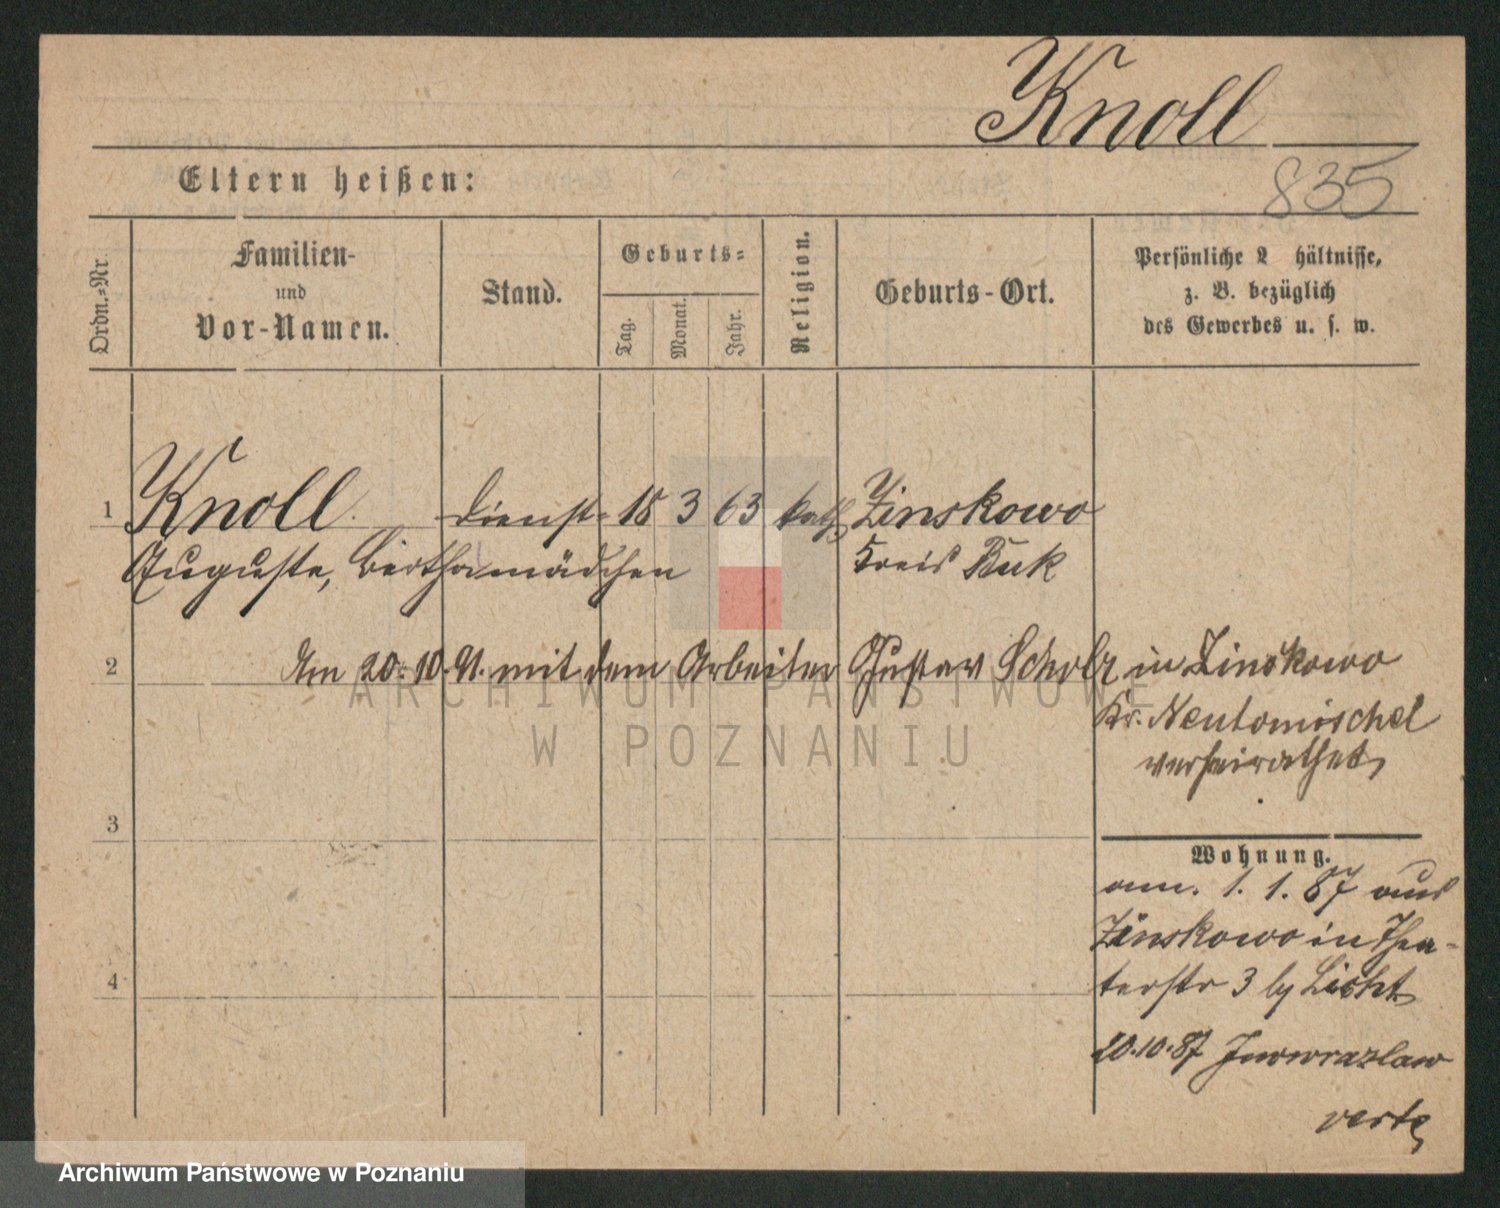 Knoll
835
Eltern heißen:
Ordn.=Nr.
Familien-
und
Vor-Namen.
Stand.
Geburts=
Tag.
Monat.
Jahr.
Religion.
Geburts-Ort.
Persönliche V hältnisse,
z. B. bezüglich
des Gewerbes u. s. w.
1 Knoll Dienst= 18 3 63 kath Zinskowo
Auguste, Bertha mädchen Kreis Buk
2 Am 20. 10. 91. mit dem Arbeiter Gustav Scholz in Zinskowo
Kr. Neutomischel
verheirathet
3
Wohnung.
am. 1. 1. 87 aus
Zinskowo in Thea-
terstr 3 by Licht
4
20.10.87 Inowrazlaw
verte
ARCHIWUM PAŃSTWOWE
W POZNANIU
Archiwum Państwowe w Poznaniu